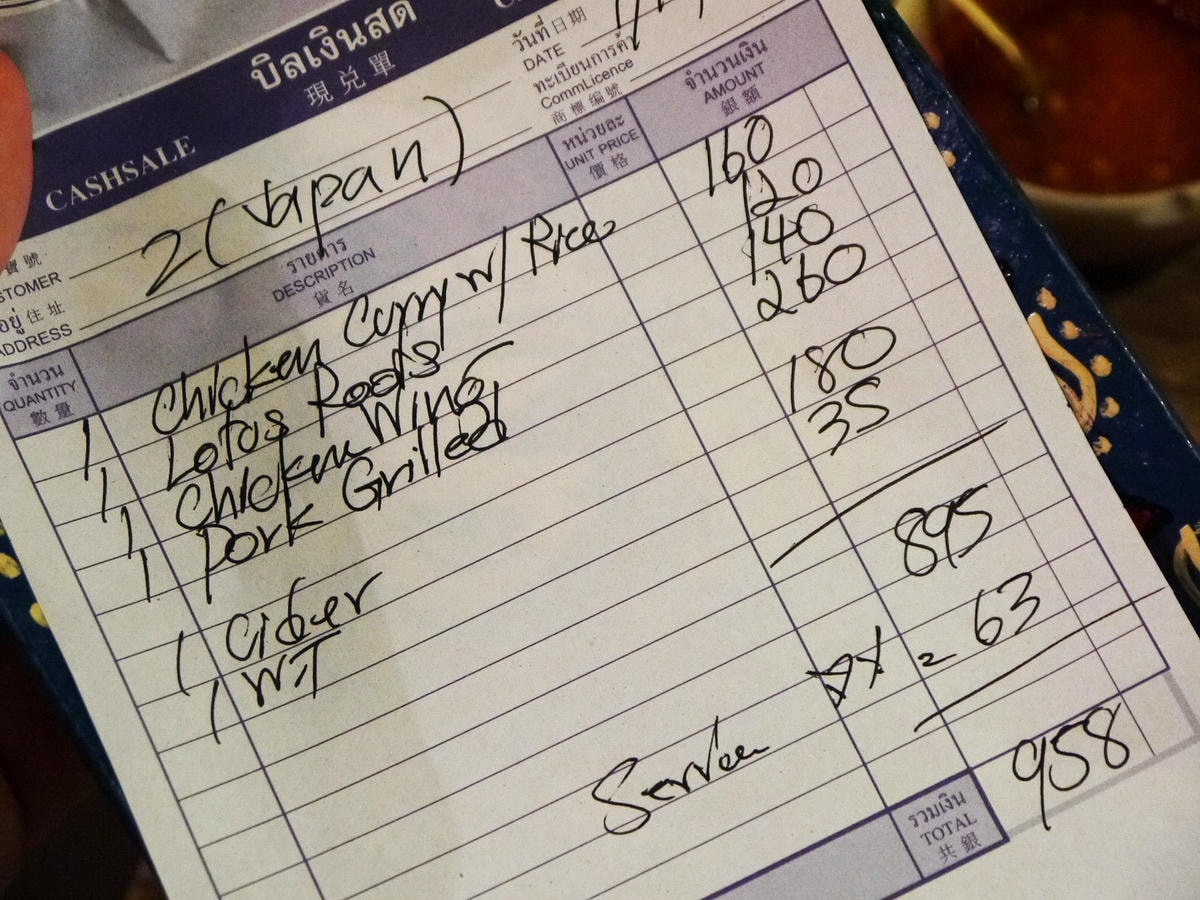 บิลเงินสด
現兑單
CASHSALE
วันที่ 日期
DATE
ทะเบียนการค้า
CommLicence
商標编號
寶號
STOMER
2 (Japan)
อยู่ 住址
ADDRESS
จำนวน
QUANTITY
數量
รายการ
DESCRIPTION
貨名
หน่วยละ
UNIT PRICE
價格
จำนวนเงิน
AMOUNT
銀額
1 Chicken Curry w/ Rice 160
1 Lotas Roots 120
1 Chicken Wing 140
1 Pork Grilled 260
1 Cider 180
1 WT 35
895
= 63
Service
รวมเงิน
TOTAL
共銀
958